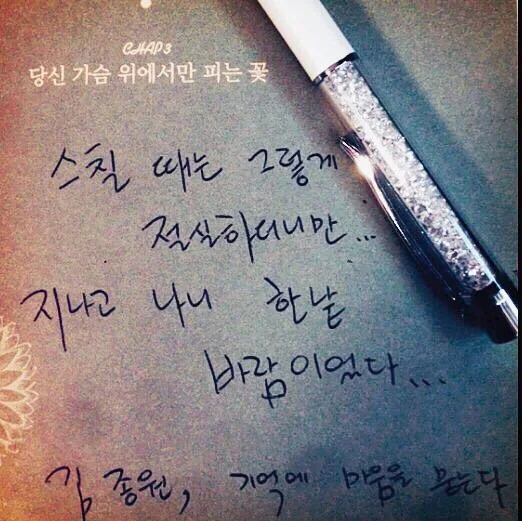 CHAP3
당신 가슴 위에서만 피는 꽃
스칠 때는 그렇게
절실하더니만...
지나고 나니 한낱
바람이었다...
김종원, 기억에 마음을 묻는다